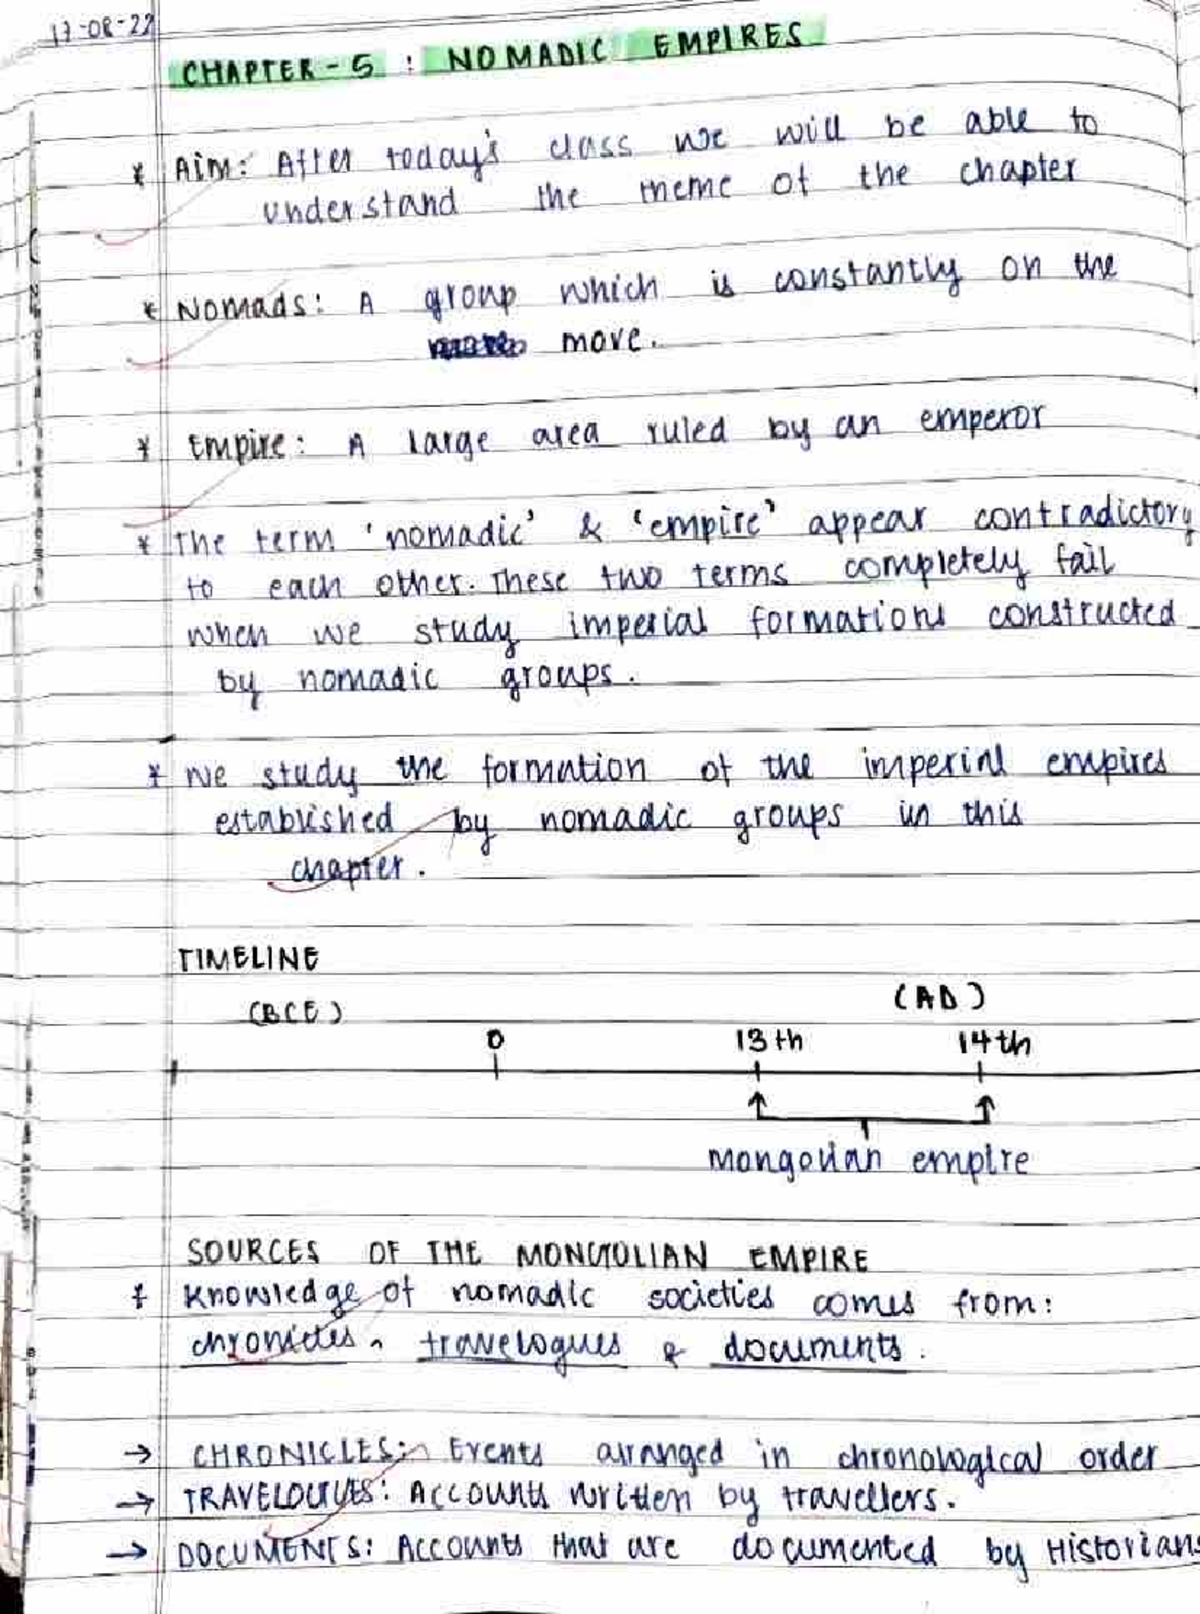 17-08-22
CHAPTER-5 : NOMADIC EMPIRES
* Aim: After today's class we will be able to
understand the theme of the chapter
* Nomads: A group which is constantly on the
move.
* Empire: A large area ruled by an emperor
* The term 'nomadic' & 'empire' appear contradictory
to each other. These two terms completely fail
when we study imperial formations constructed
by nomadic groups.
* We study the formation of the imperial empires
established by nomadic groups in this
chapter.
TIMELINE
(BCE) (AD)
0 13th 14th
mongolian empire
SOURCES OF THE MONGOLIAN EMPIRE
* Knowledge of nomadic societies comes from:
chronicles, travelogues & documents.
→ CHRONICLES: Events arranged in chronological order
→ TRAVELOGUES: Accounts written by travellers.
→ DOCUMENTS: Accounts that are documented by Historians